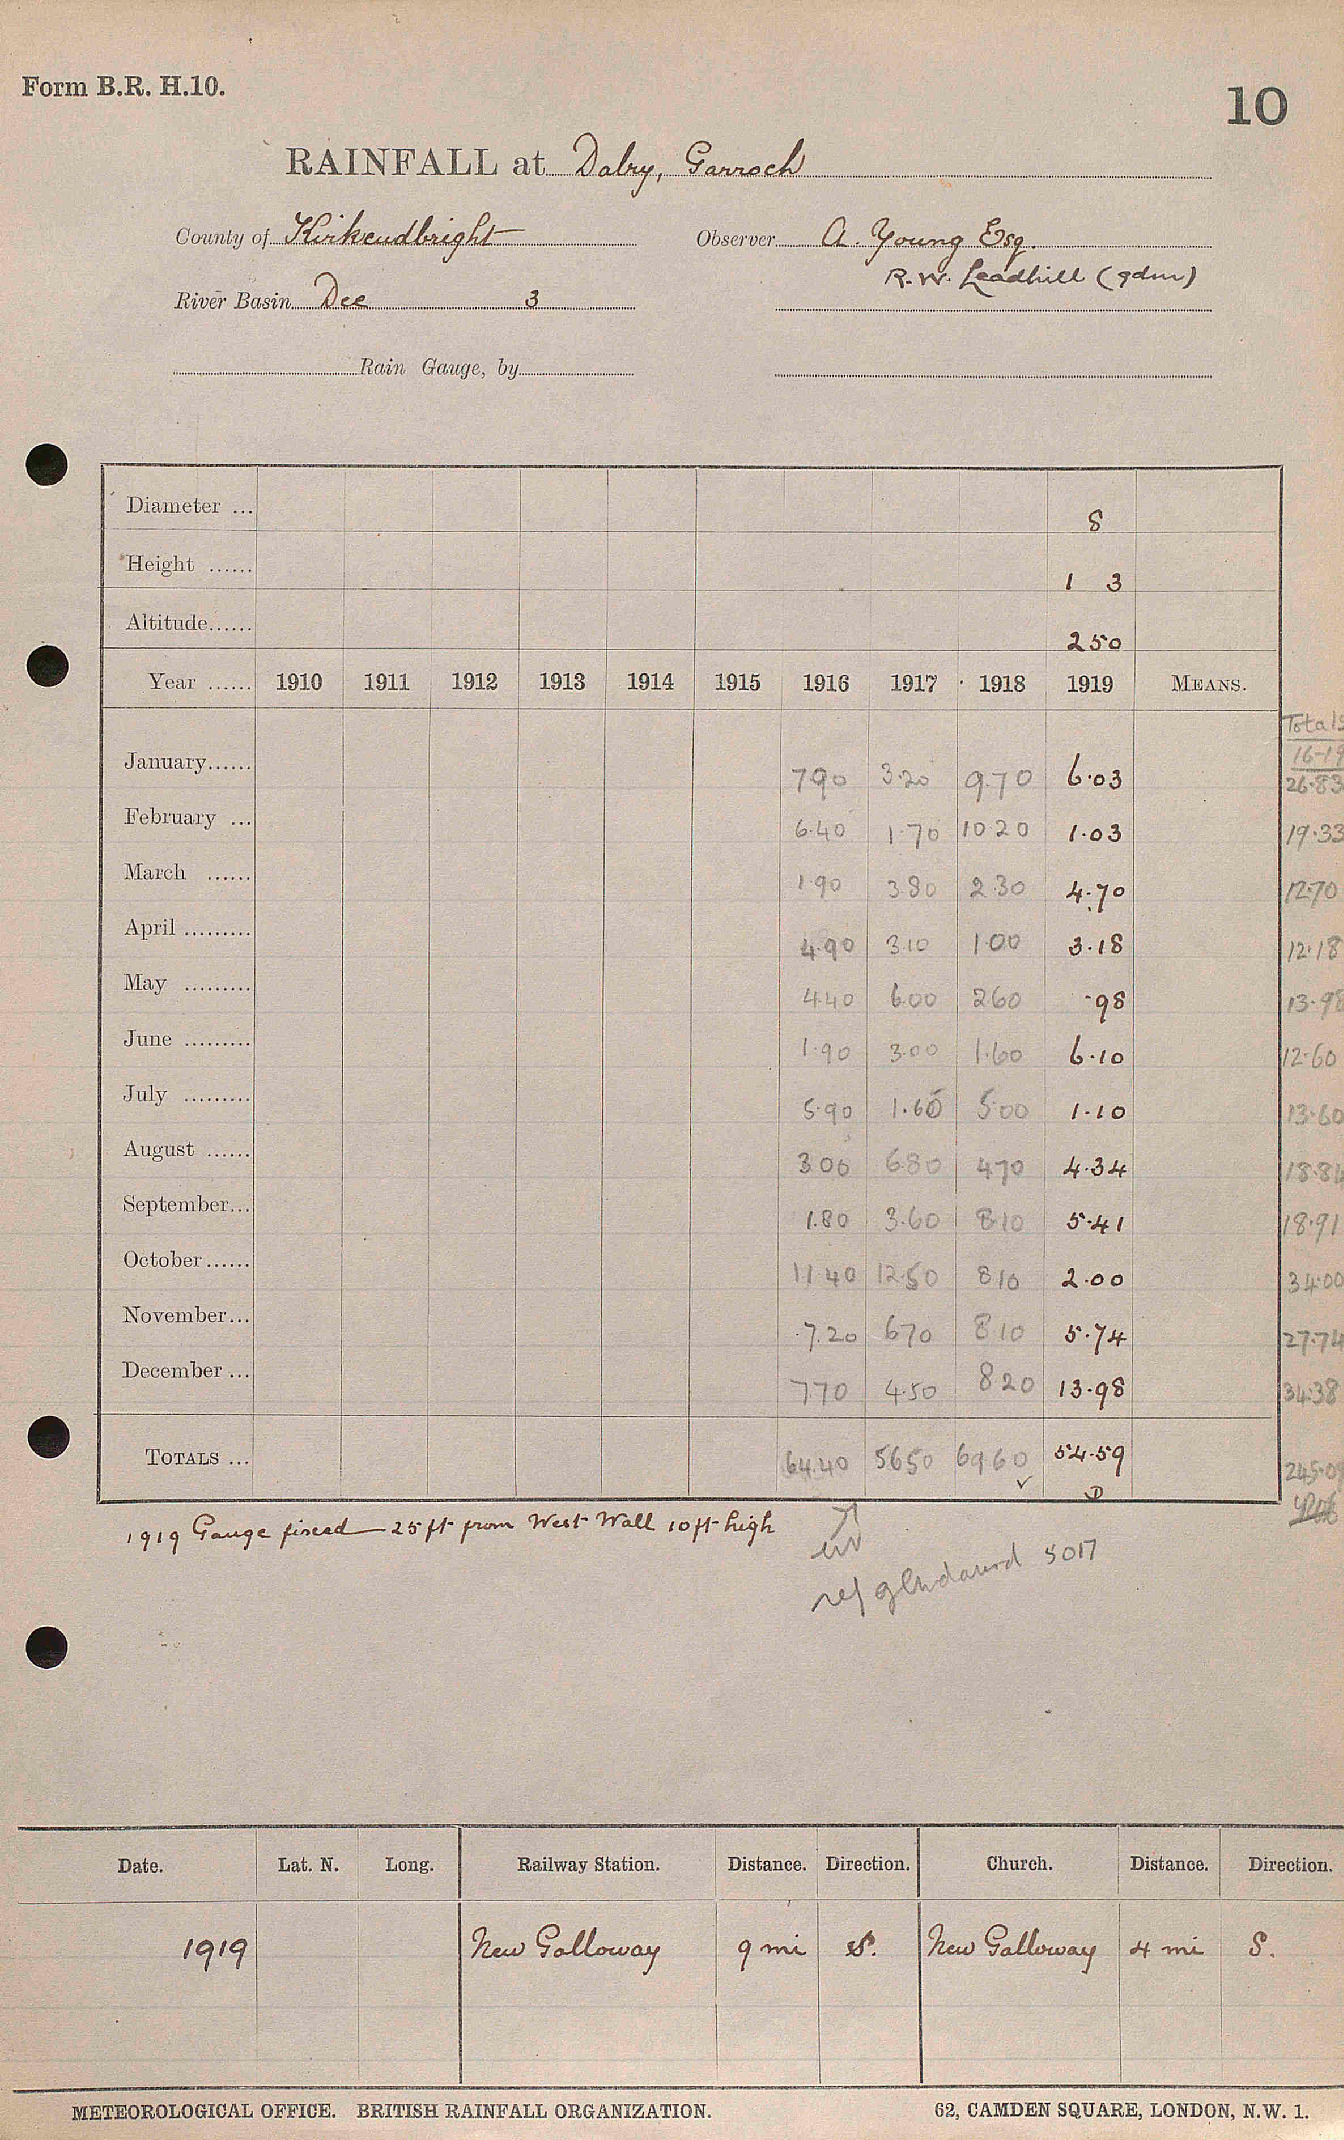 Form B.R. H.10.
10
RAINFALL at Dalry, Garroch
County of Kirkcudbright Observer A. Young Esq.
R. W. Leadhill (gdnr)
River Basin Dee 3
Rain Gauge, by
Diameter ... 8
Height ...... 1 3
Altitude...... 250
Year ...... 1910 1911 1912 1913 1914 1915 1916 1917 1918 1919 MEANS.
Totals
16-19
January...... 7.90 3.20 9.70 6.03 26.83
February ... 6.40 1.70 10.20 1.03 19.33
March ...... 1.90 3.80 2.30 4.70 12.70
April ......... 4.90 3.10 1.00 3.18 12.18
May ......... 4.40 6.00 2.60 .98 13.98
June ......... 1.90 3.00 1.60 6.10 12.60
July ......... 5.90 1.60 5.00 1.10 13.60
August ...... 3.00 6.80 4.70 4.34 18.84
September... 1.80 3.60 8.10 5.41 18.91
October...... 11.40 12.50 8.10 2.00 34.00
November... 7.20 6.70 8.10 5.74 27.74
December ... 7.70 4.50 8.20 13.98 34.38
TOTALS ... 64.40 56.50 69.60 54.59 245.09
1919 Gauge fixed 25 ft from West Wall 10 ft high
5017
Date. Lat. N. Long. Railway Station. Distance. Direction. Church. Distance. Direction.
1919 New Galloway 9 mi S. New Galloway 4 mi S.
METEOROLOGICAL OFFICE. BRITISH RAINFALL ORGANIZATION. 62, CAMDEN SQUARE, LONDON, N.W. 1.